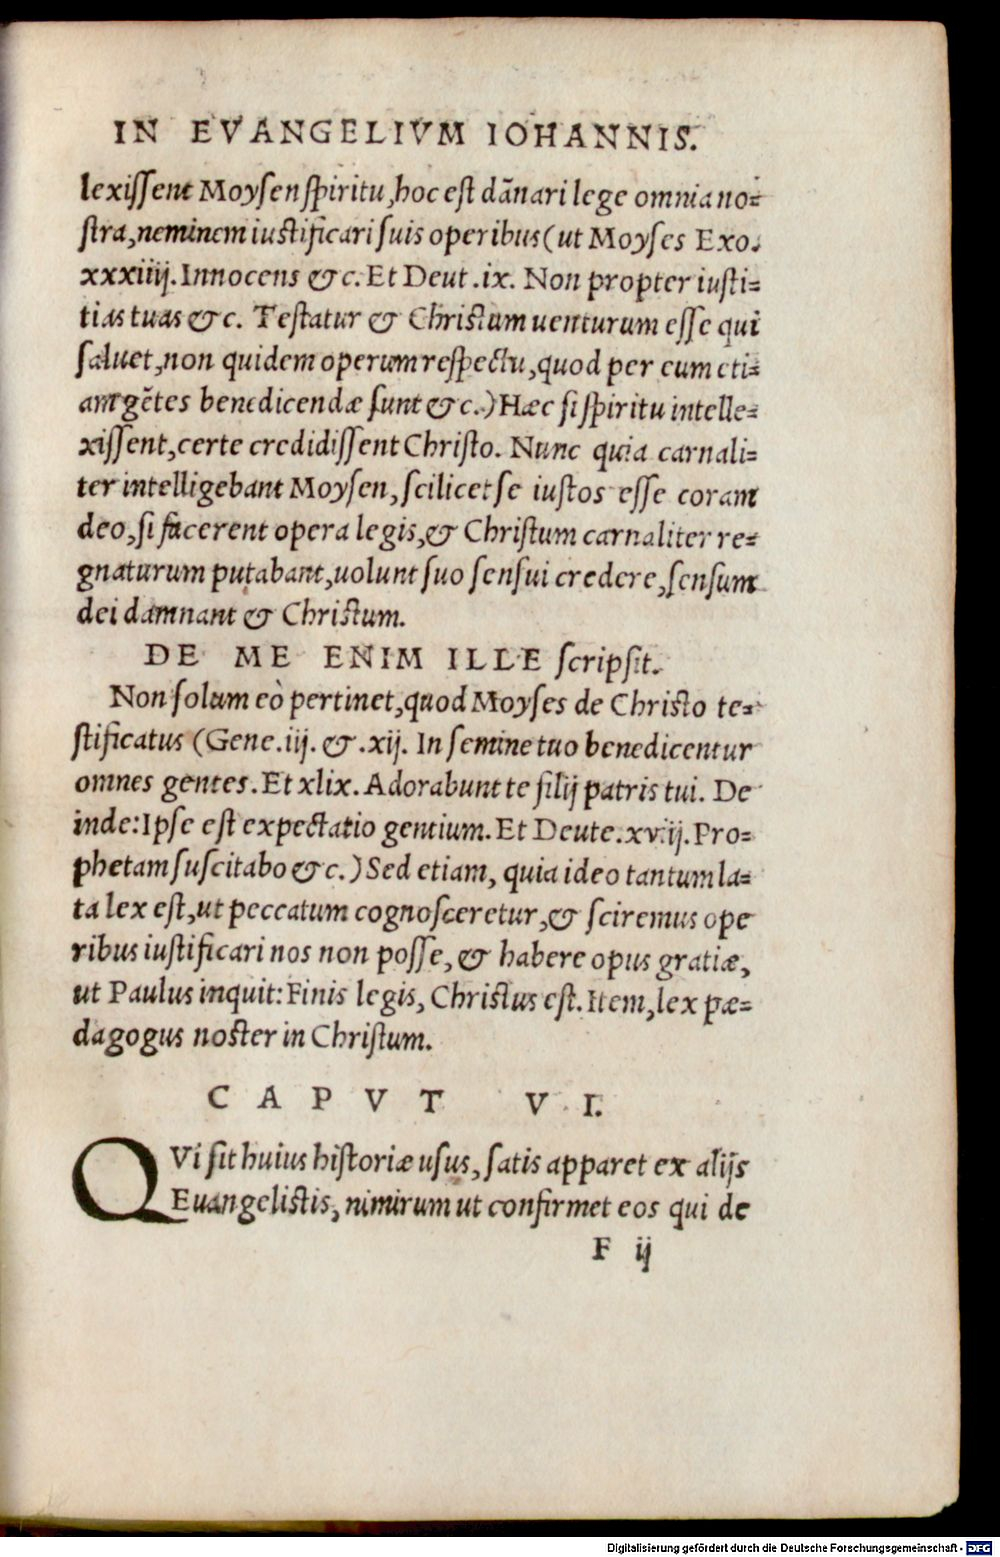 IN EVANGELIVM IOHANNIS.
lexissent Moysen spiritu, hoc est dānari lege omnia no=
stra, neminem iustificari suis operibus (ut Moyses Exo.
xxxiiij. Innocens &c. Et Deut .ix. Non propter iusti=
tias tuas &c. Testatur & Christum uenturum esse qui
saluet, non quidem operum respectu, quod per eum eti=
am gẽtes benedicendæ sunt &c.) Hæc si spiritu intelle=
xissent, certe credidissent Christo. Nunc quia carnali=
ter intelligebant Moysen, scilicet se iustos esse coram
deo, si facerent opera legis, & Christum carnaliter re=
gnaturum putabant, uolunt suo sensui credere, sensum
dei damnant & Christum.
DE ME ENIM ILLE scripsit.
Non solum eò pertinet, quod Moyses de Christo te=
stificatus (Gene .iij. & .xij. In semine tuo benedicentur
omnes gentes. Et xlix. Adorabunt te filij patris tui. De
inde: Ipse est expectatio gentium. Et Deute. xviij. Pro=
phetam suscitabo &c.) Sed etiam, quia ideo tantum la=
ta lex est, ut peccatum cognosceretur, & sciremus ope
ribus iustificari nos non posse, & habere opus gratiæ,
ut Paulus inquit: Finis legis, Christus est. Item, lex pæ=
dagogus noster in Christum.
CAPVT VI.
QVi sit huius historiæ usus, satis apparet ex alijs
Euangelistis, nimirum ut confirmet eos qui de
F ij
Digitalisierung gefördert durch die Deutsche Forschungsgemeinschaft - DFG